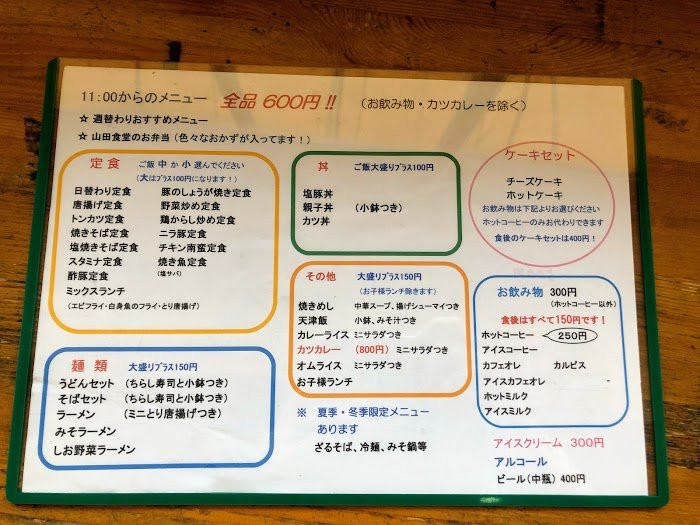 11:00からのメニュー 全品 600円!! (お飲み物・カツカレーを除く)
☆ 週替わりおすすめメニュー
☆ 山田食堂のお弁当(色々なおかずが入ってます!)
定食 ご飯 中 か 小 選んでください
(大はプラス100円になります!)
日替わり定食 豚のしょうが焼き定食
唐揚げ定食 野菜炒め定食
トンカツ定食 鶏からし炒め定食
焼きそば定食 ニラ豚定食
塩焼きそば定食 チキン南蛮定食
スタミナ定食 焼き魚定食
酢豚定食 (塩サバ)
ミックスランチ
(エビフライ・白身魚のフライ・とり唐揚げ)
麺類 大盛りプラス150円
うどんセット (ちらし寿司と小鉢つき)
そばセット (ちらし寿司と小鉢つき)
ラーメン (ミニとり唐揚げつき)
みそラーメン
しお野菜ラーメン
丼 ご飯大盛りプラス100円
塩豚丼
親子丼 (小鉢つき)
カツ丼
その他 大盛りプラス150円
(お子様ランチ除きます)
焼きめし 中華スープ、揚げシューマイつき
天津飯 小鉢、みそ汁つき
カレーライス ミニサラダつき
カツカレー (800円) ミニサラダつき
オムライス ミニサラダつき
お子様ランチ
※ 夏季・冬季限定メニュー
あります
ざるそば、冷麺、みそ鍋等
ケーキセット
チーズケーキ
ホットケーキ
お飲み物は下記よりお選びください
ホットコーヒーのみお代わりできます
食後のケーキセットは400円!
お飲み物 300円
(ホットコーヒー以外)
食後はすべて150円です!
ホットコーヒー 250円
アイスコーヒー
カフェオレ カルピス
アイスカフェオレ
ホットミルク
アイスミルク
アイスクリーム 300円
アルコール
ビール(中瓶) 400円